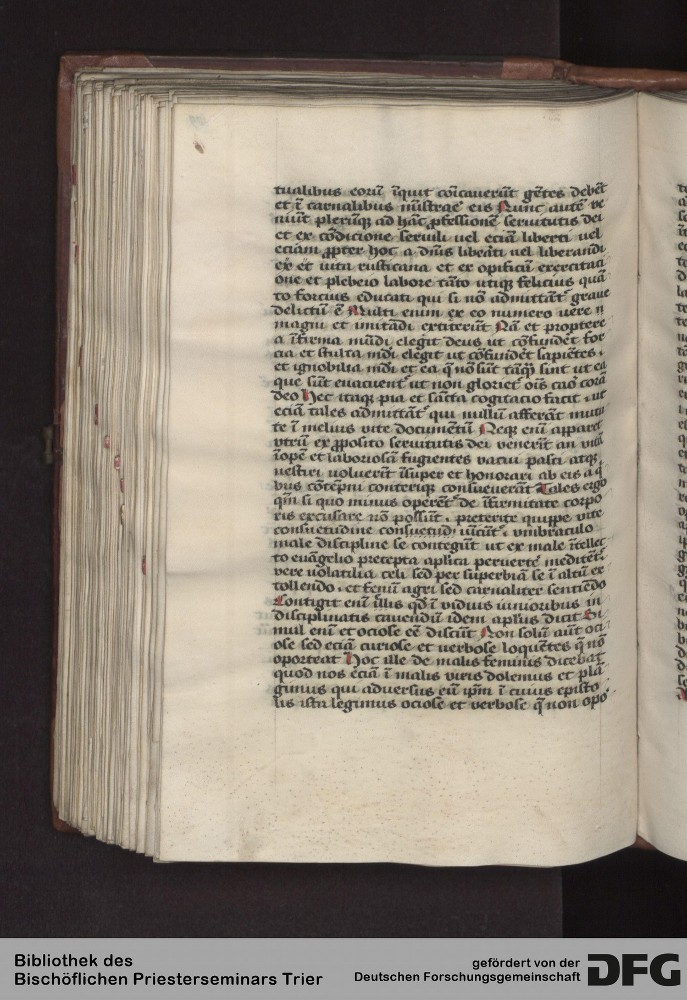 tualibus eorū īquit cōicaverūt gētes debēt
et ī carnalibus mīstrare eis Nunc autē ve
niūt plerūq; ad hāc ꝓfessionē servitutis dei
et ex cōdicione servili vel eciā liberti vel
eciam ꝓpter hoc a dn̄is liberati vel liberandi
ex et vita rusticana et ex opificū exercitaci
one et plebeio labore tāto utiq; felicius quā
to forcius educati qui si nō admittāt̄ grave
delictū ē Multi enim ex eo numero vere
magni et imitādi extiterūt Nā et proptere
a īfirma mūdi elegit deus ut cōfunderet for
cia et stulta mdi elegit ut cōfūdēt sapiētes
et ignobilia mdi et ea q̄ nō sūt tāq̄ sint ut ea
que sūt evacuent ut non gloriet̄ oīs caō corā
deo Hec itaq; pia et sācta cogitacio facit ut
eciā tales admittāt̄ qui nullū afferāt muta
te ī melius vite documētū Neq; enī apparet
utrū ex ꝓposito servitutis dei venerīt an vitā
īopē et laboriosā fugientes vacui pasci atq;
vestiri voluerīt īsuper et honorari ab eis a q̄
bus cōtēpni conteriq; consueverāt Tales ergo
qm̄ si quo minus operēt̄ de īfirmitate corpo
ris excusare nō possūt preterite quippe vite
consuetudine umbraculo
male discipline se contegūt ut ex male ītellec
to euāgelio precepta aplīca pervertē meditēt̄
vere volatilia celi sed per superbiā se ī altū ex
tollendo et fenū agri sed carnaliter sentiēdo
Contigit enī illis qd̄ ī viduis iunioribus in
disciplinatis cavendū idem aplūs dicit Si
mul enī et ociose eē discūt Non solū aūt oci
ose sed eciā curiose et verbose loquētes q̄ nō
oporteat Hoc ille de malis feminis dicebat
quod nos eciā ī malis viris dolemus et plā
gimus qui adversus eū ipm̄ ī cuius episto
lis ista legimus ociose et verbose q̄ non opo
Bibliothek des
Bischöflichen Priesterseminars Trier
gefördert von der
Deutschen Forschungsgemeinschaft
DFG